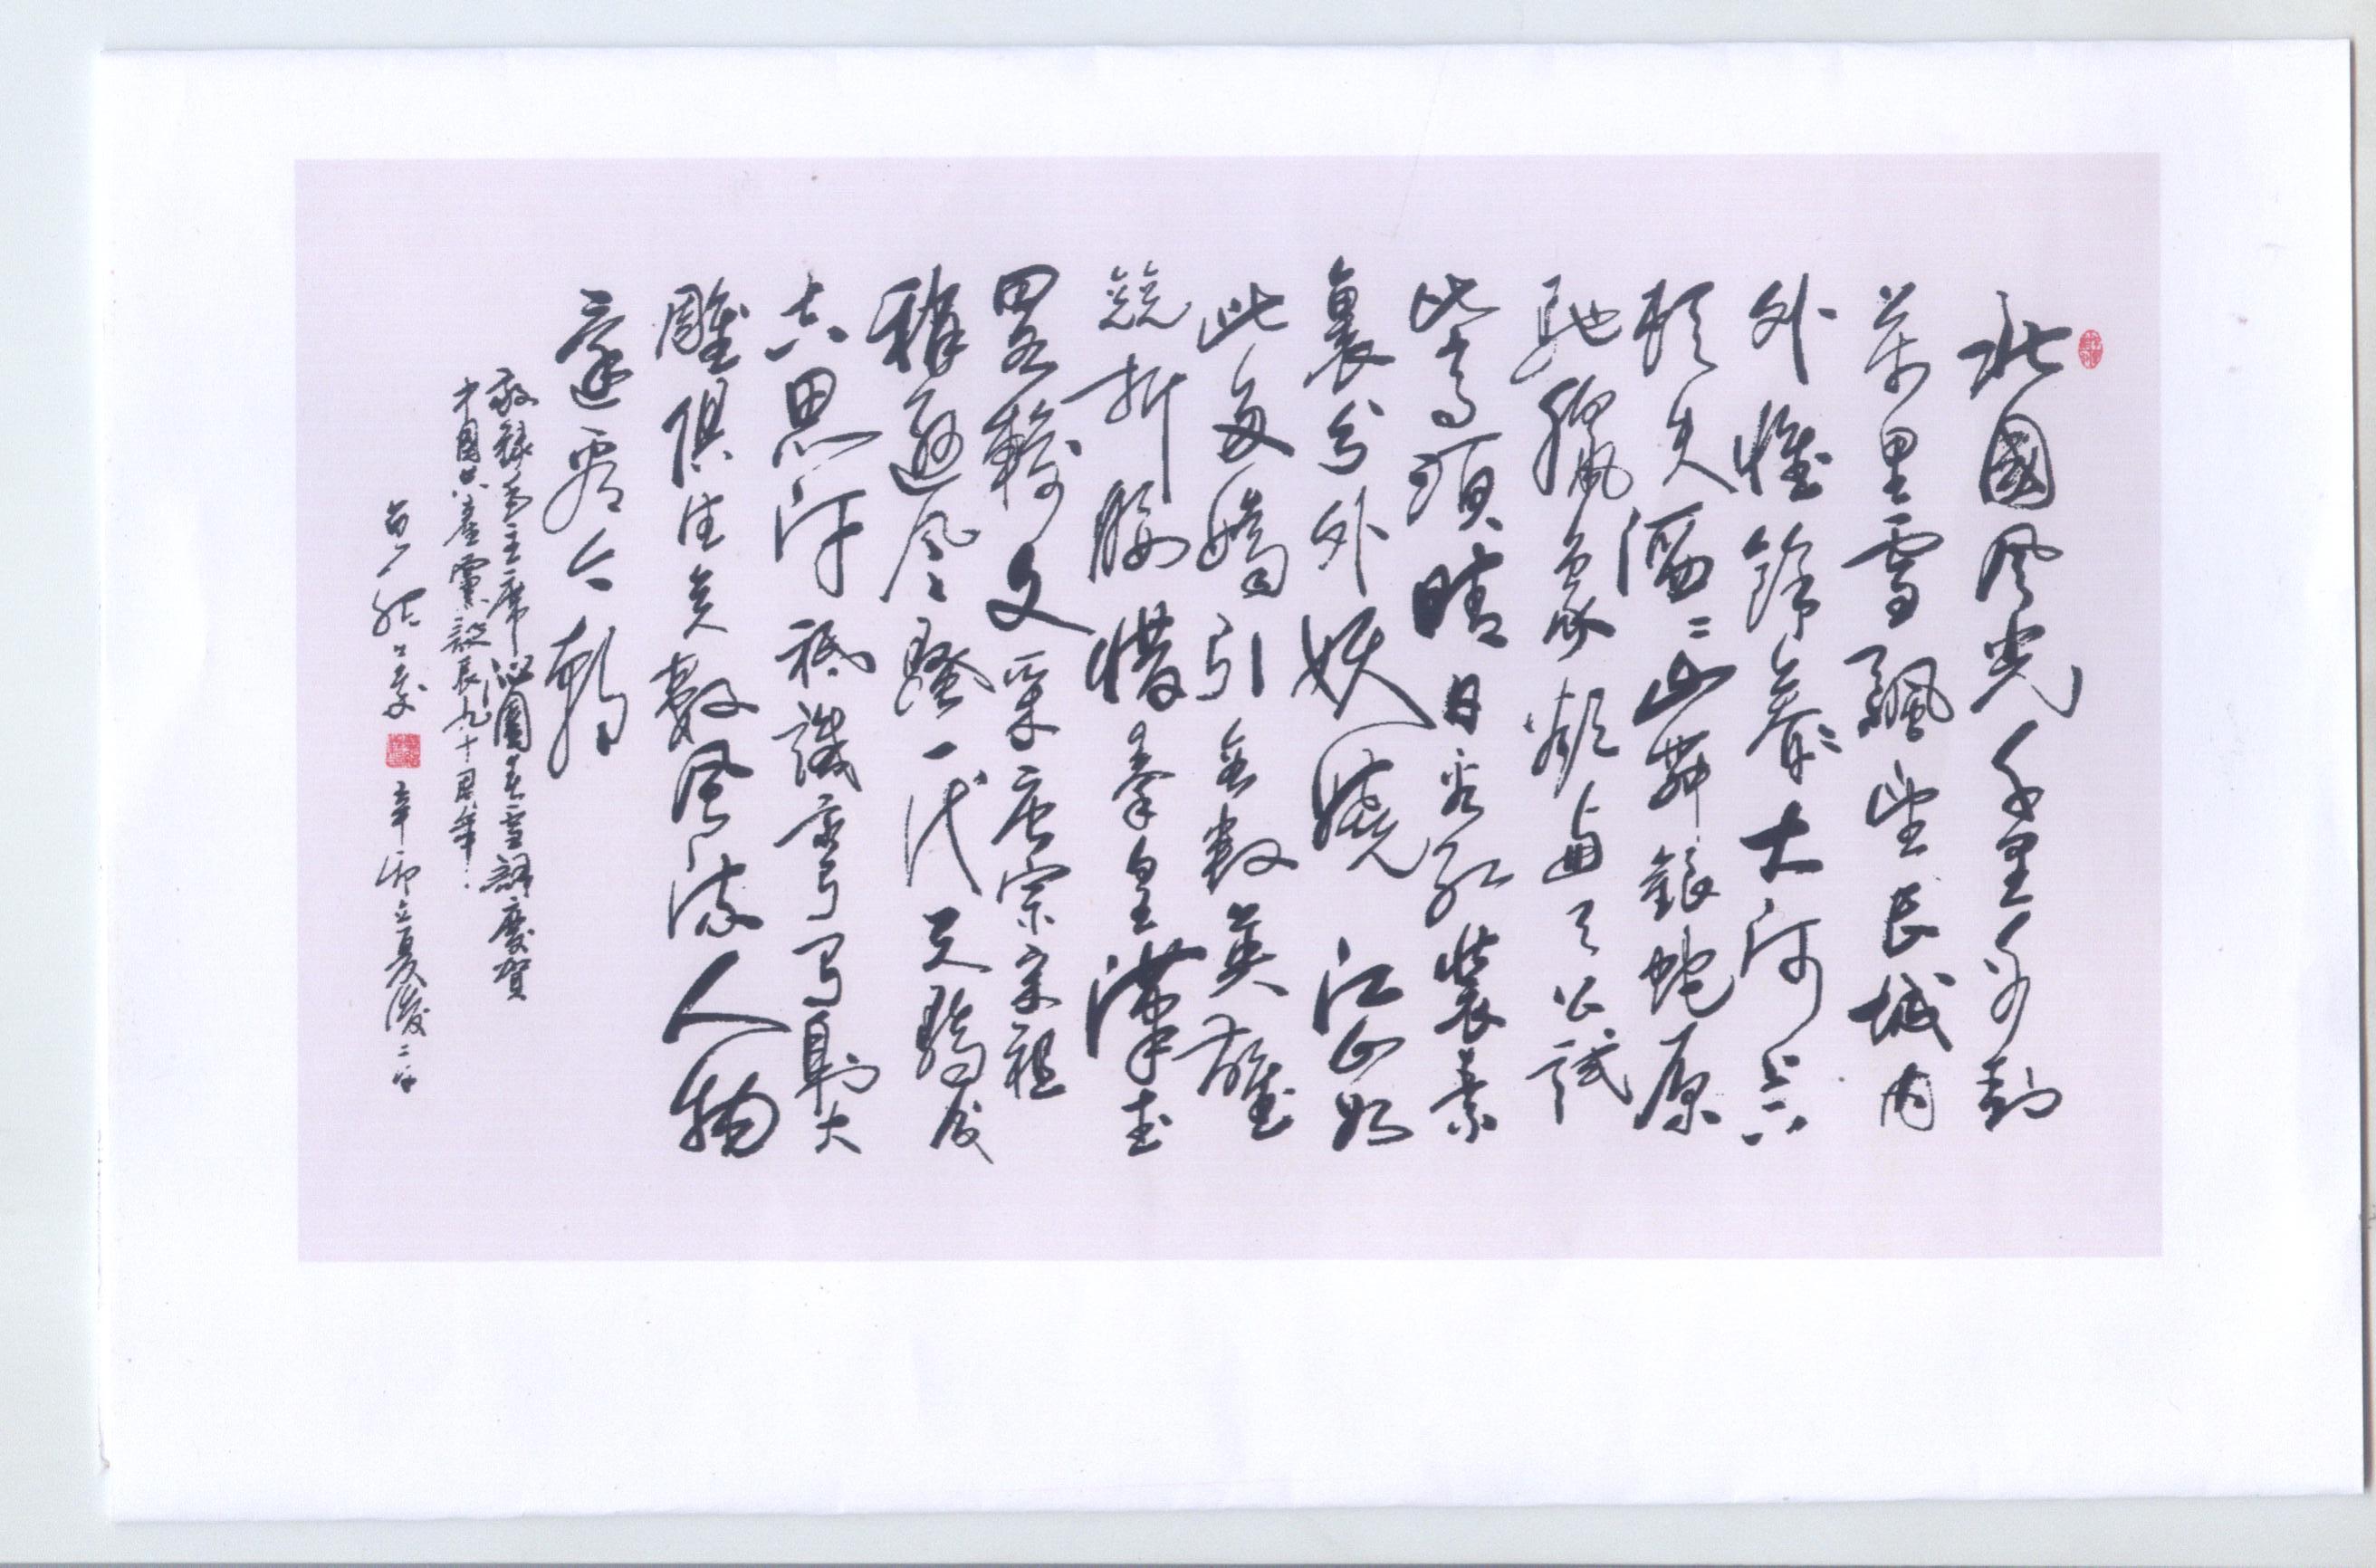 北國风光千里冰封
萬里雪飄望長城内
外惟餘莽〻大河上下
頓失滔〻山舞銀蛇原
馳臘象欲與天公試
比高須晴日看紅裝素
裏分外妖嬈江山如
此多嬌引無數英雄
競折腰惜秦皇漢武
畧輸文采唐宗宋祖
稍遜风〻騷一代天驕成
吉思汗祗識弯弓射大
雕俱往矣數风流人物
還看今朝
敬錄毛主席沁園春雪詞慶賀
中國共產黨誕辰九十周年
辛卯立夏後二日